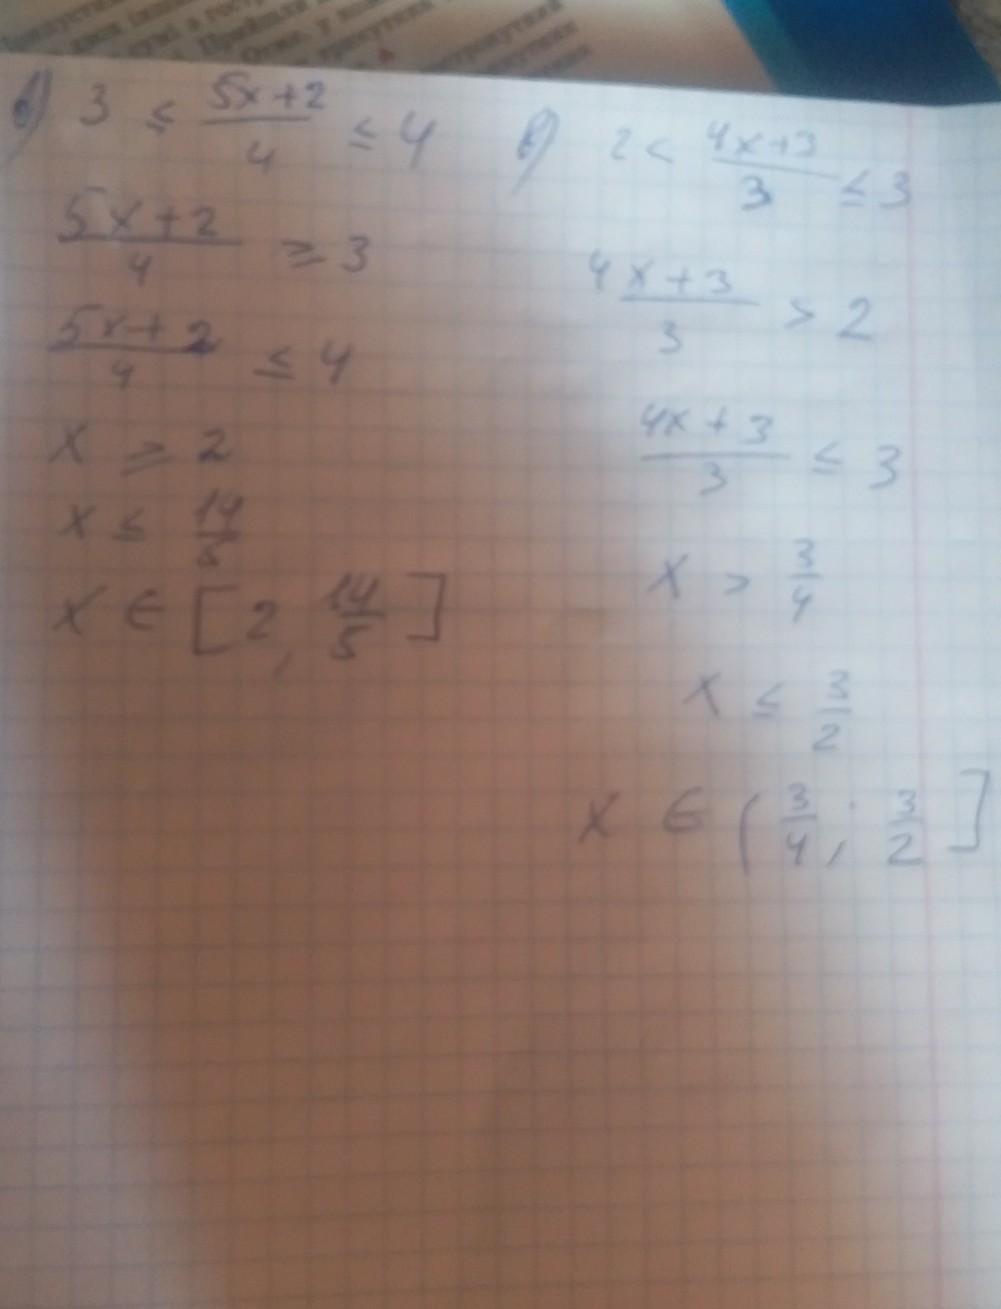 б) 3 ≤ (5x+2)/4 ≤ 4
(5x+2)/4 ≥ 3
(5x+2)/4 ≤ 4
x ≥ 2
x ≤ 14/5
x ∈ [2, 14/5]
в) 2 < (4x+3)/3 ≤ 3
(4x+3)/3 > 2
(4x+3)/3 ≤ 3
x > 3/4
x ≤ 3/2
x ∈ (3/4; 3/2]